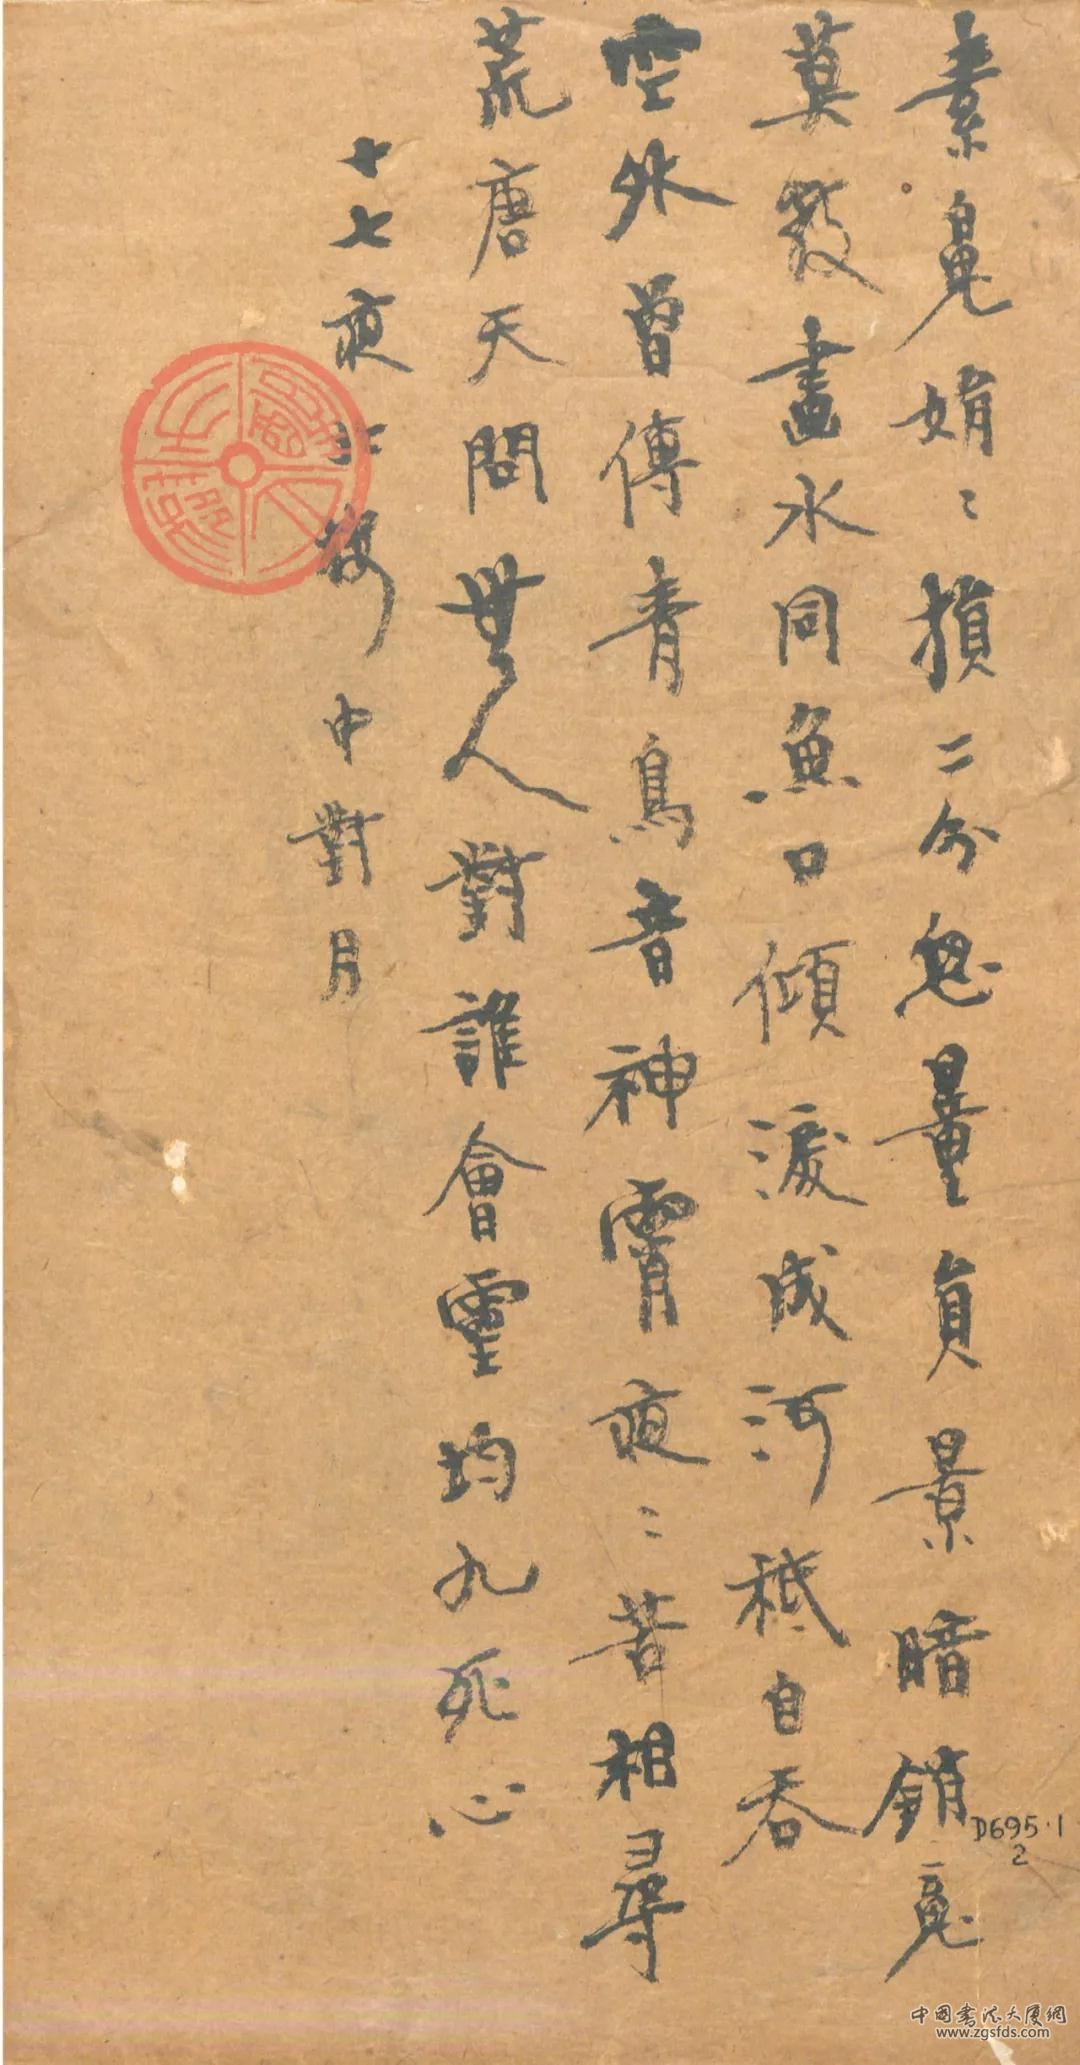 素娟〻損二分量負景暗銷
莫教畫水同魚口傾成河秖自吞
外曾傳青鳥音神霄夜〻苦相尋
荒唐天問無人對誰會靈均九死心
十七夜中對月
D695·1
2
中國書法大厦網
www.zgsfds.com